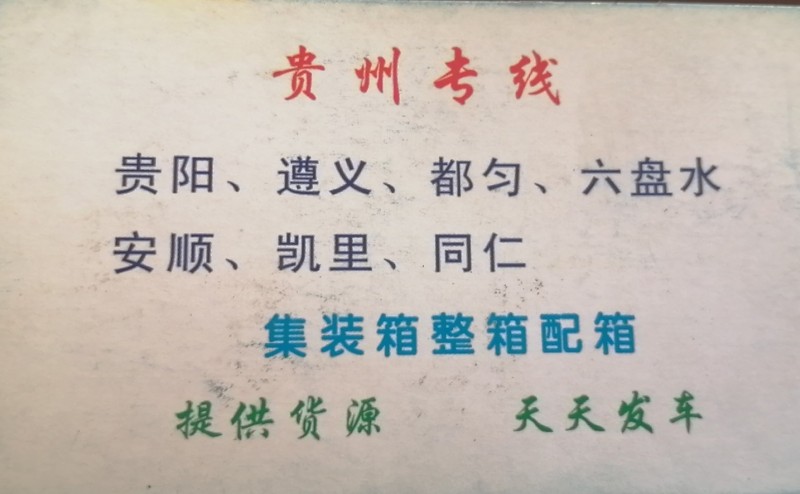 贵州专线
贵阳、遵义、都匀、六盘水
安顺、凯里、同仁
集装箱整箱配箱
提供货源 天天发车